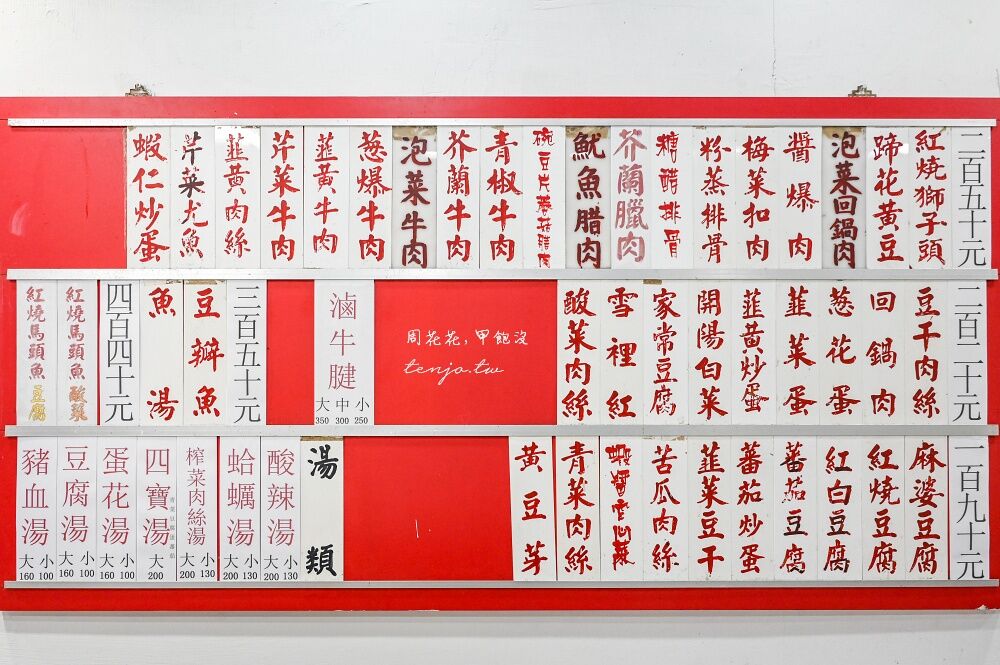 二百五十元
紅燒獅子頭
蹄花黃豆
泡菜回鍋肉
醬爆肉
梅菜扣肉
粉蒸排骨
糖醋排骨
芥蘭臘肉
魷魚腊肉
碗豆片
青椒牛肉
芥蘭牛肉
泡菜牛肉
葱爆牛肉
韮黃牛肉
芹菜牛肉
韮黃肉絲
芹菜尤魚
蝦仁炒蛋
二百二十元
豆干肉絲
回鍋肉
葱花蛋
韮菜蛋
韮黃炒蛋
開陽白菜
家常豆腐
雪裡紅
酸菜肉絲
周花花，甲飽沒
tenjo.tw
滷牛腱
大 中 小
350 300 250
三百五十元
豆瓣魚
魚湯
四百四十元
紅燒馬頭魚
紅燒馬頭魚豆腐
一百九十元
麻婆豆腐
紅燒豆腐
紅白豆腐
蕃茄豆腐
蕃茄炒蛋
韮菜豆干
苦瓜肉絲
青菜肉絲
黃豆芽
湯類
酸辣湯
大 小
200 130
蛤蠣湯
大 小
200 130
榨菜肉絲湯
大 小
200 130
四寶湯
大
200
蛋花湯
大 小
160 100
豆腐湯
大 小
160 100
豬血湯
大 小
160 100